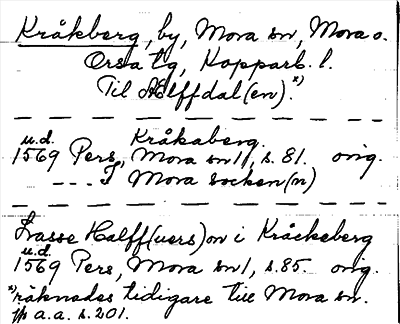 Kråkberg, by, Mora sn, Mora o.
Orsa tg, Kopparb. l.
Till Älffdal(en).x)
u.d. Kråkaberg.
1569 Pers, Mora sn 1, s. 81. orig.
--- I Mora socken(n)
Lasse Halff(uers)on i Kråckeberg
u.d.
1569 Pers, Mora sn 1, s. 85. orig.
x) räknades tidigare till Mora sn.
a.a. s. 201.